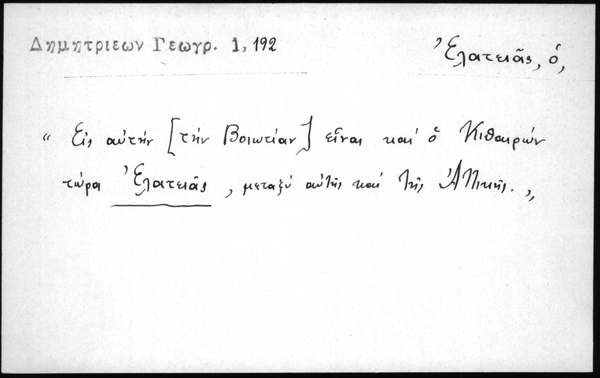 Δημητριεων Γεωγρ. 1, 192
Ἐλατειᾶς, ὁ,
" Εἰς αὐτήν [τήν Βοιωτίαν] εἶναι καί ὁ Κιθαιρών
τώρα Ἐλατειᾶς, μεταξύ αὐτῆς καί τῆς Ἀττικῆς. "